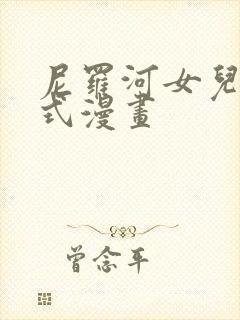 尼羅河女兒
式漫畫
曾念平